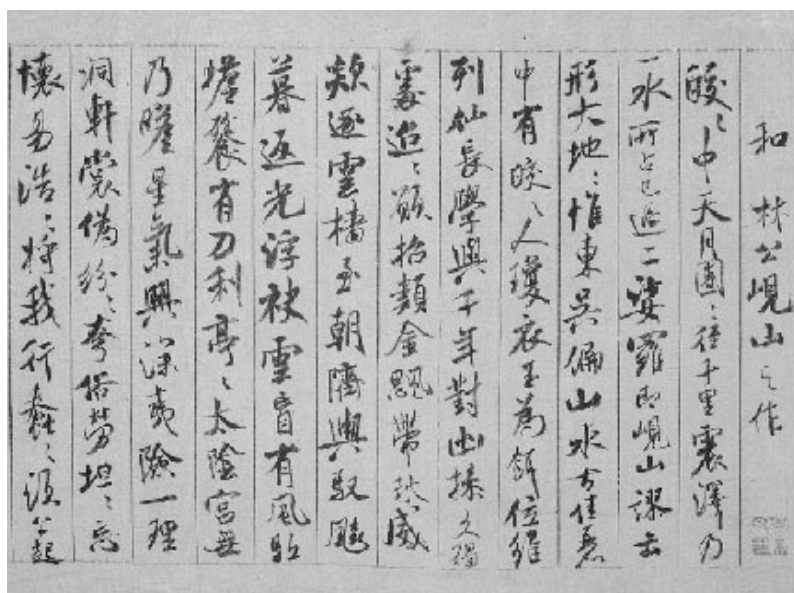 和林公峴山之作
皎皎中天月團團徑千里震澤乃
一水所占已過二娑羅即峴山謬云
形大地地惟東吳偏山水古佳麗
中有皎皎人瓊衣玉為餌位維
列仙長學與千年對幽操久獨
處迢迢願招類金飔帶秋威
欻逐雲檣至朝隮輿馭飈
暮返光浮袂雲盲有風駈
蟾餮有刀利亭亭太陰宮無
乃瞻星氣興深夷險一理
洞軒裳偽紛紛夸俗勞坦坦忘
懷易浩浩將我行蠢蠢須公起